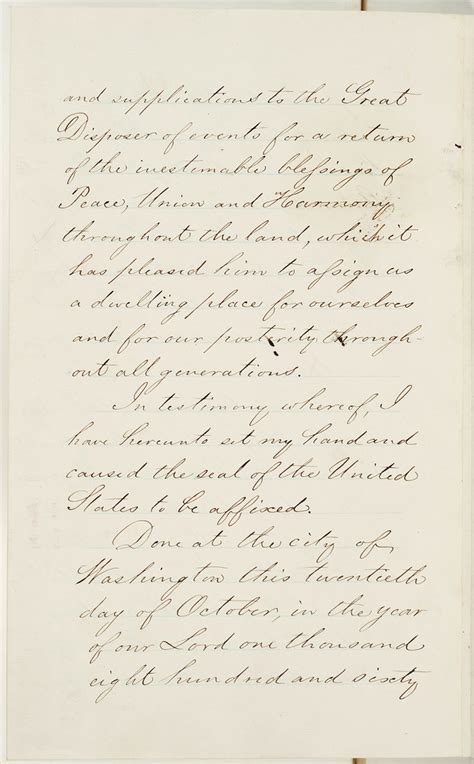 and supplications to the Great
Disposer of events for a return
of the inestimable blessings of
Peace, Union and Harmony
throughout the land, which it
has pleased him to assign us
a dwelling place for ourselves
and for our posterity through-
out all generations.
In testimony whereof, I
have hereunto set my hand and
caused the seal of the United
States to be affixed.
Done at the city of
Washington this twentieth
day of October, in the year
of our Lord one thousand
eight hundred and sixty